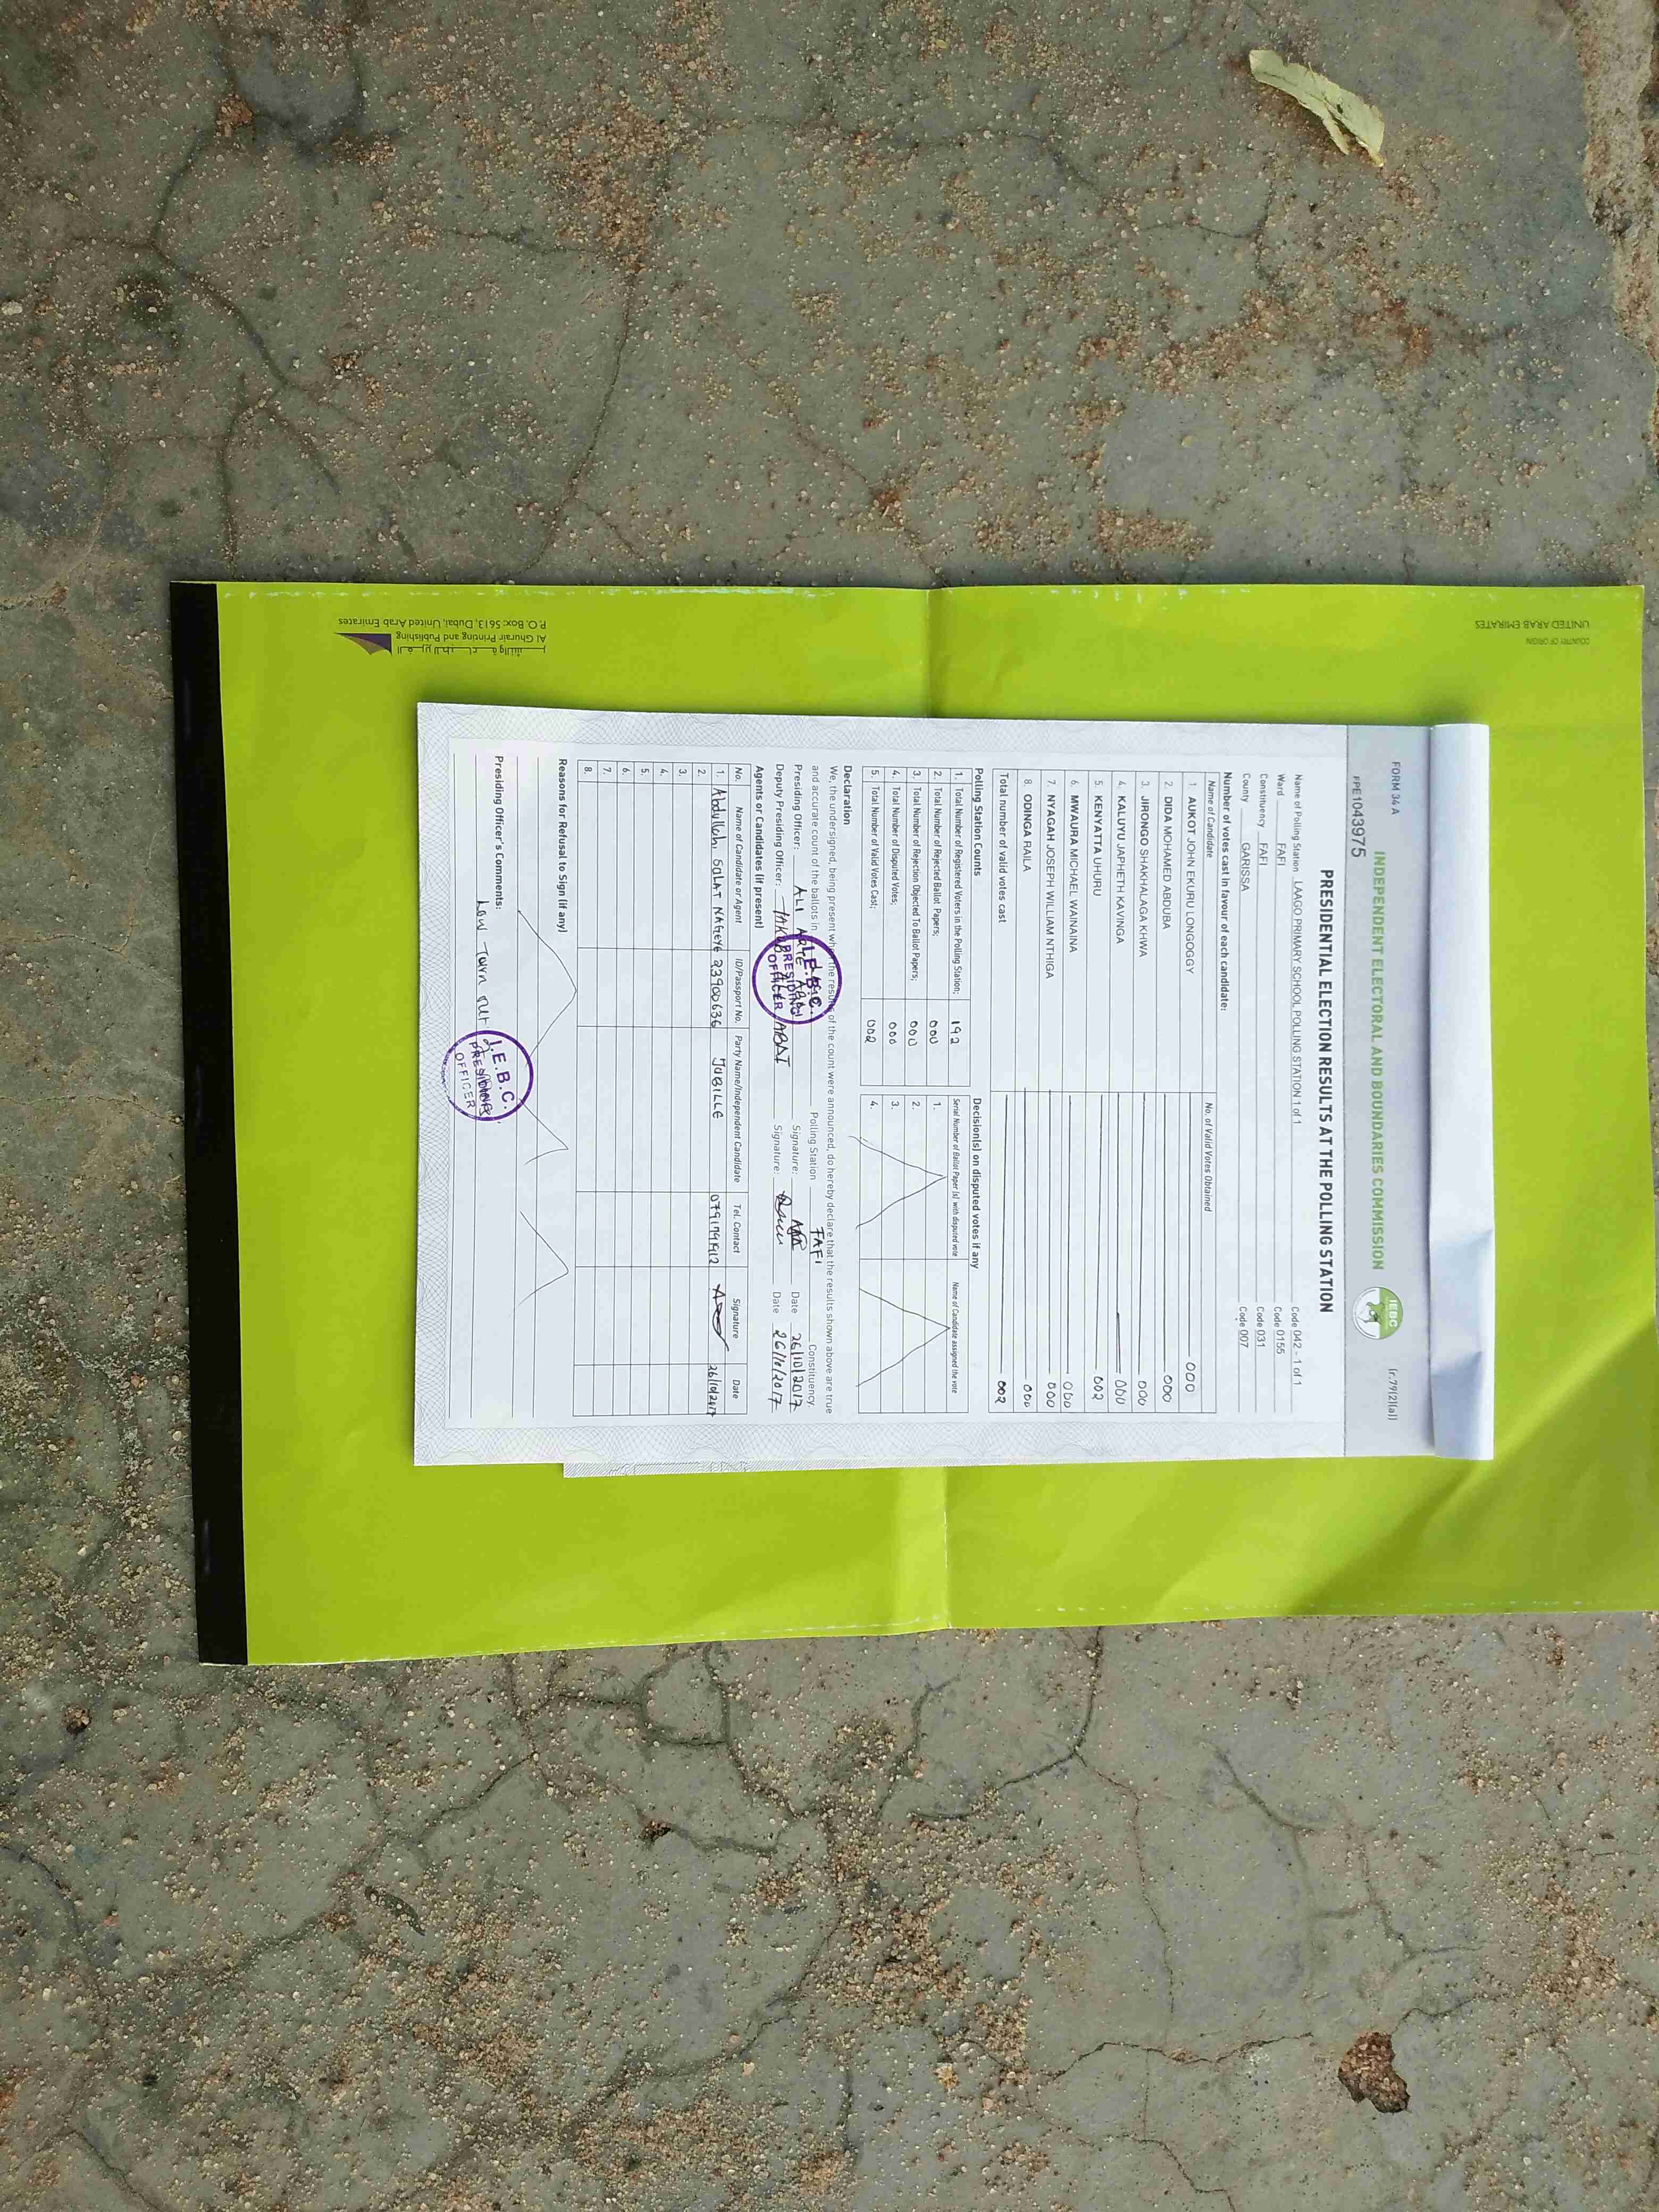 FORM 34 A
(r.79(2)(a))
INDEPENDENT ELECTORAL AND BOUNDARIES COMMISSION
IEBC
PPE1043975
PRESIDENTIAL ELECTION RESULTS AT THE POLLING STATION
Name of Polling Station LAAGO PRIMARY SCHOOL POLLING STATION 1 of 1 Code 042 - 1 of 1
Ward FAFI Code 0155
Constituency FAFI Code 031
County GARISSA Code 007
Number of votes cast in favour of each candidate:
Name of Candidate No. of Valid Votes Obtained
1. AUKOT JOHN EKURU LONGOGGY 000
2. DIDA MOHAMED ABDUBA 000
3. JIRONGO SHAKHALAGA KHWA 000
4. KALUYU JAPHETH KAVINGA 000
5. KENYATTA UHURU 002
6. MWAURA MICHAEL WAINAINA 000
7. NYAGAH JOSEPH WILLIAM NTHIGA 000
8. ODINGA RAILA 000
Total number of valid votes cast 002
Polling Station Counts
1. Total Number of Registered Voters in the Polling Station; 192
2. Total Number of Rejected Ballot Papers; 000
3. Total Number of Rejection Objected To Ballot Papers; 000
4. Total Number of Disputed Votes; 000
5. Total Number of Valid Votes Cast; 002
Decision(s) on disputed votes if any
Serial Number of Ballot Paper (s) with disputed vote Name of Candidate assigned the vote
1.
2.
3.
4.
Declaration
We, the undersigned, being present when the results of the count were announced, do hereby declare that the results shown above are true
and accurate count of the ballots in Polling Station FAFI Constituency.
Presiding Officer: ALI Signature: Date 26/10/2017
Deputy Presiding Officer: ABDI Signature: Date 26/10/2017
I.E.B.C.
PRESIDING
OFFICER
Agents or Candidates (if present)
No. Name of Candidate or Agent ID/Passport No. Party Name/Independent Candidate Tel. Contact Signature Date
1. Abdullahi SOLAT NAGEYE 23900636 JUBILLE 0791791912 26/10/2017
2.
3.
4.
5.
6.
7.
8.
Reasons for Refusal to Sign (if any)
Presiding Officer's Comments:
Low Turn out
I.E.B.C.
PRESIDING
OFFICER
Al Ghurair Printing and Publishing
P.O. Box: 5613, Dubai, United Arab Emirates
COUNTRY OF ORIGIN
UNITED ARAB EMIRATES